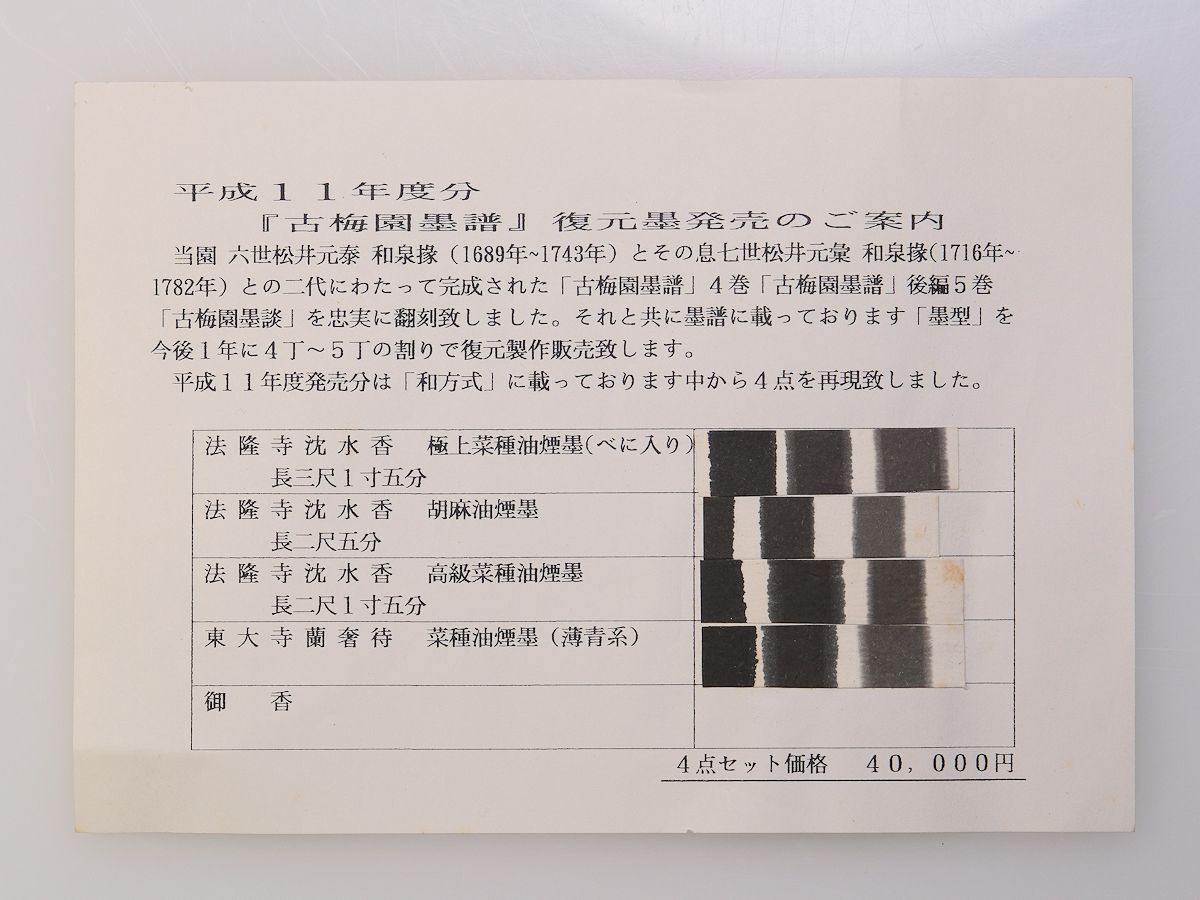 平成１１年度分
『古梅園墨譜』復元墨発売のご案内
当園 六世松井元泰 和泉掾（1689年~1743年）とその息七世松井元彙 和泉掾(1716年~
1782年）との二代にわたって完成された「古梅園墨譜」４巻「古梅園墨譜」後編５巻
「古梅園墨談」を忠実に翻刻致しました。それと共に墨譜に載っております「墨型」を
今後１年に４丁～５丁の割りで復元製作販売致します。
平成１１年度発売分は「和方式」に載っております中から４点を再現致しました。
法隆寺沈水香 極上菜種油煙墨(べに入り)
長三尺１寸五分
法隆寺沈水香 胡麻油煙墨
長二尺五分
法隆寺沈水香 高級菜種油煙墨
長二尺１寸五分
東大寺蘭奢待 菜種油煙墨（薄青系）
御 香
４点セット価格 ４０，０００円